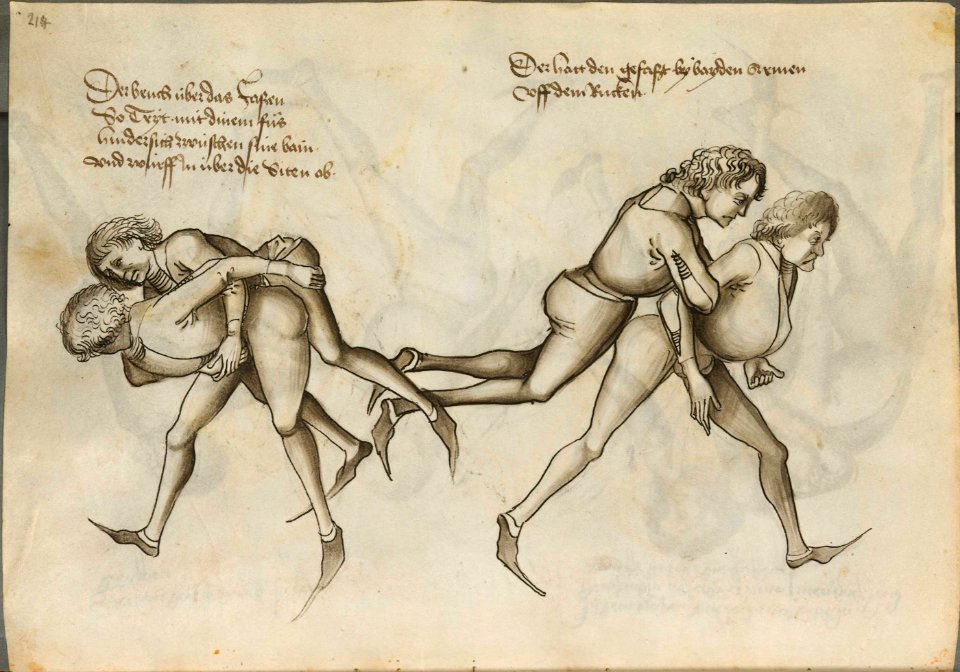 214
Der bruch über das Fassen
So Tryt mit dinem fůs
hindersich zwüschen sine bain
und würff In über die Siten ob
Der hatt den gefasst by bayden Armen
Uff dem Rucken